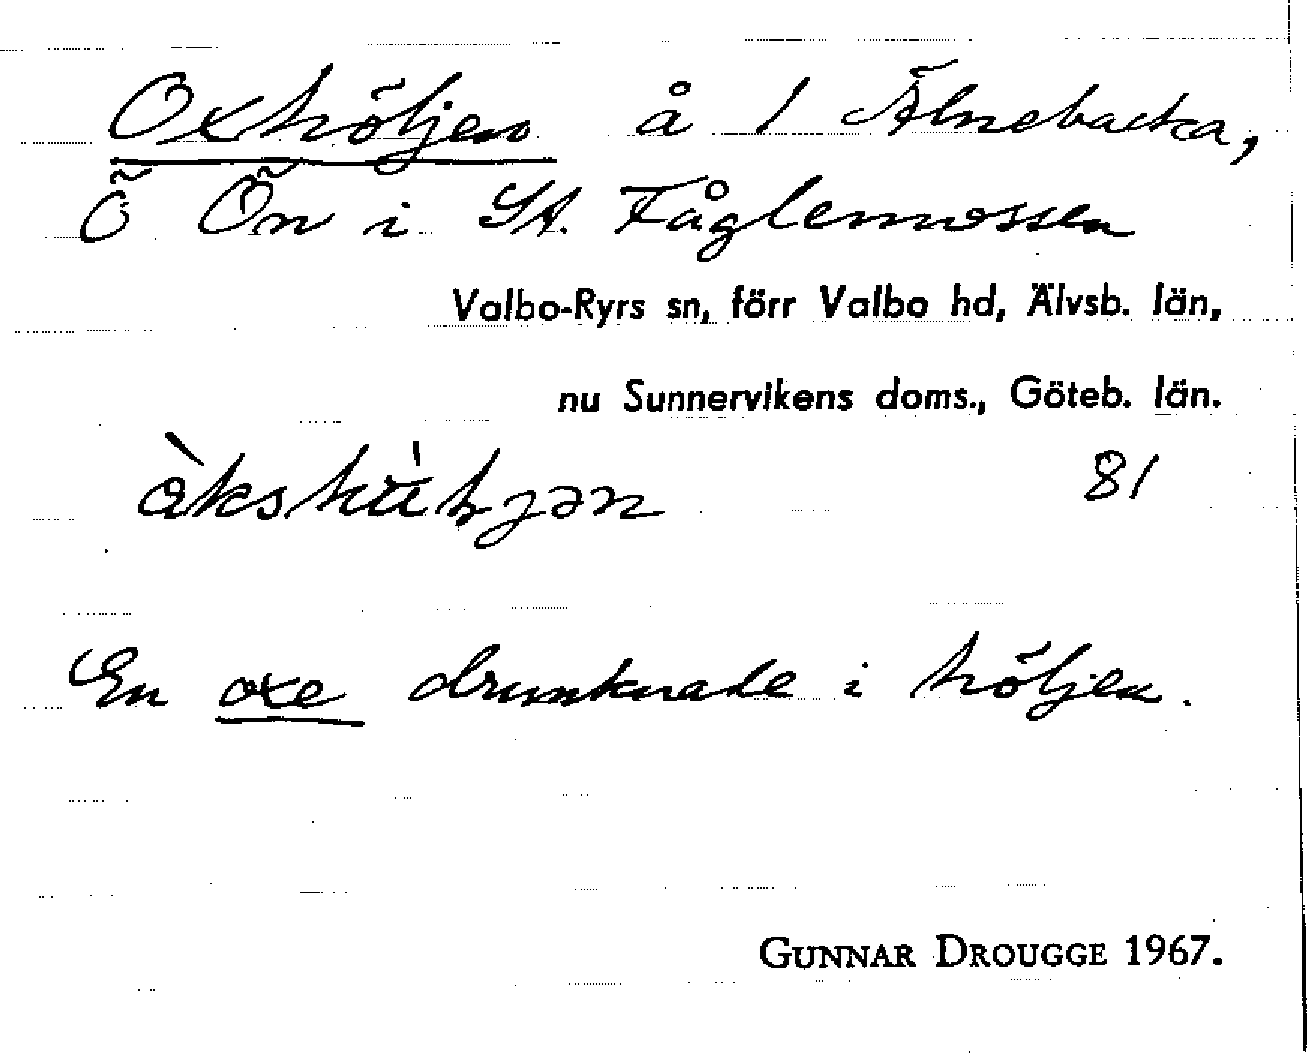 Oxhöljen å 1 Älnebacka,
Ö Ön i St. Fåglemossen
Valbo-Ryrs sn, förr Valbo hd, Älvsb. län,
nu Sunnervikens doms., Göteb. län.
81
En oxe drunknade i höljen.
GUNNAR DROUGGE 1967.